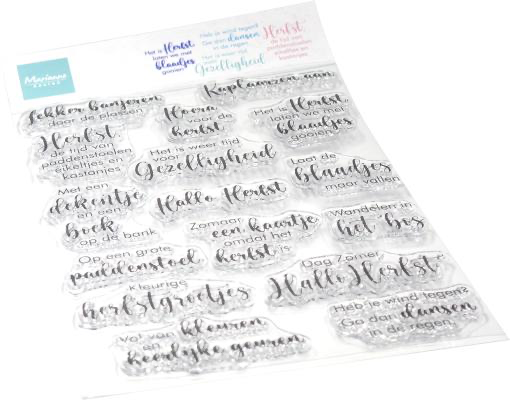 Het is Herfst
laten we met
blaadjes
gooien!
Heb je wind tegen?
Ga dan dansen
in de regen
Het is weer tijd
voor
Gezelligheid
Herfst,
de tijd van
paddenstoelen
eikeltjes en
kastanjes
Marianne
DESIGN
Lekker banjeren
door de plassen
Kaplaarzen aan,
Hoera
voor de
herfst
Het is Herfst,
laten we met
blaadjes
gooien!
Herfst,
de tijd van
paddenstoelen
eikeltjes en
kastanjes
Het is weer tijd
voor
Gezelligheid
Laat de
blaadjes
maar vallen
Met een
dekentje
en een
boek
op de bank
Hallo Herfst
Zomaar
een kaartje
omdat het
herfst is
Wandelen in
het bos
Op een grote
paddenstoel
Dag Zomer,
Hallo Herfst
Kleurige
herfstgroetjes
Heb je wind tegen?
Ga dan dansen
in de regen
Vol van kleuren
en
heerlijke geuren